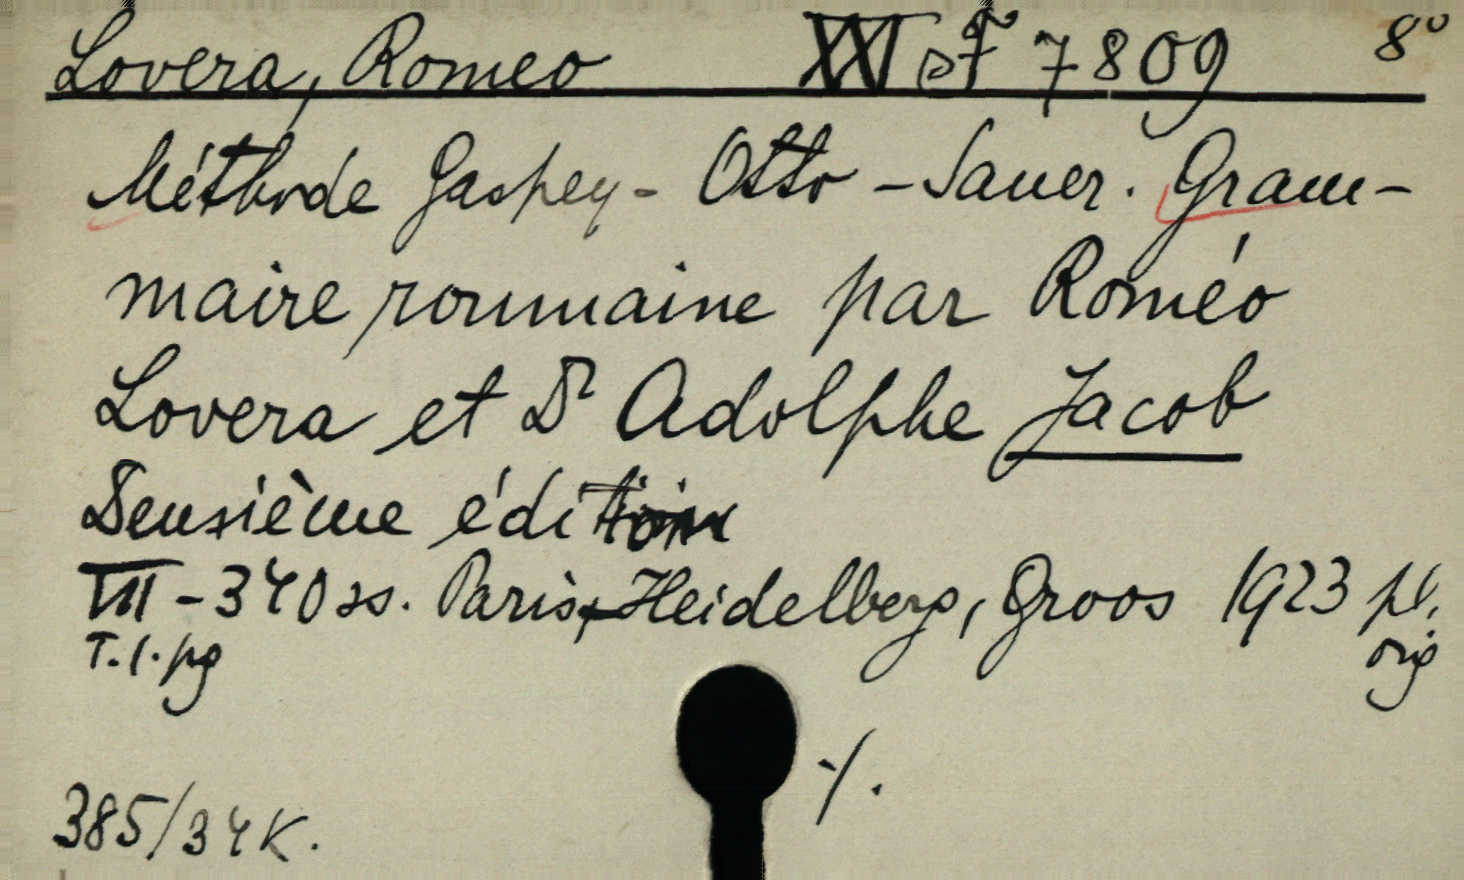 Lovera, Romeo XXI sf 7809 8º
Méthode Gaspey-Otto-Sauer. Gram-
maire roumaine par Roméo
Lovera et Dr Adolphe Jacob
Deusième édition
VII-340 ss. Paris, Heidelberg, Groos 1923 pł.
T.1.pg orig
·/.
385/34 K.